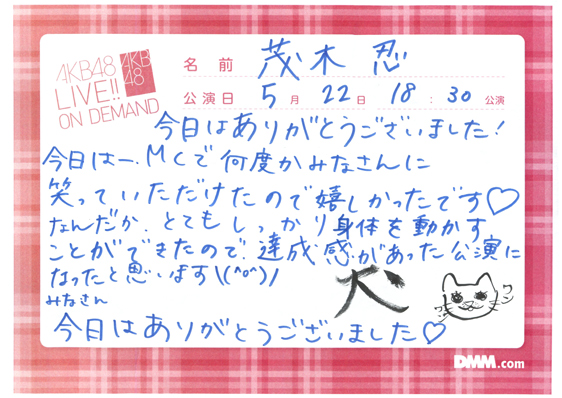 AKB48
LIVE!!
ON DEMAND
AKB
48
名前 茂木 忍
公演日 5月 22日 18:30 公演
今日はありがとうございました!
今日はー、MCで何度かみなさんに
笑っていただけたので嬉しかったです♡
なんだか、とてもしっかり身体を動かす
ことができたので、達成感があった公演に
なったと思います\(^o^)/
犬
ワン
ワン
みなさん
今日はありがとうございました♡
DMM.com